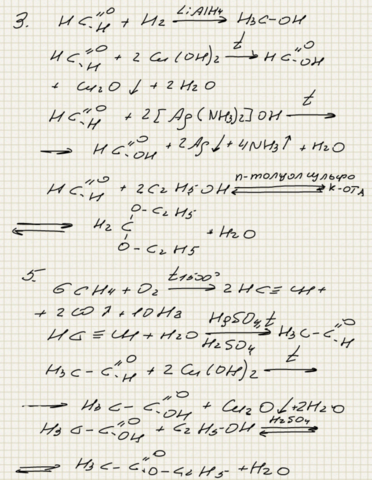 3. HC(=O)-H + H2 —LiAlH4→ H3C-OH
HC(=O)-H + 2Cu(OH)2 —t→ HC(=O)-OH
+ Cu2O↓ + 2H2O
HC(=O)-H + 2[Ag(NH3)2]OH —t→
→ HC(=O)-OH + 2Ag↓ + 4NH3↑ + H2O
HC(=O)-H + 2C2H5OH ⇌ п-толуолсульфо к-ота
O-C2H5
⇌ H2C + H2O
O-C2H5
5. 6CH4 + O2 —t 1500°→ 2HC≡CH +
+ 2CO↑ + 10H2
HC≡CH + H2O —HgSO4, t / H2SO4→ H3C-C(=O)-H
H3C-C(=O)-H + 2Cu(OH)2 —t→
→ H3C-C(=O)-OH + Cu2O↓ + 2H2O
H3C-C(=O)-OH + C2H5-OH ⇌ H2SO4
⇌ H3C-C(=O)-O-C2H5 + H2O